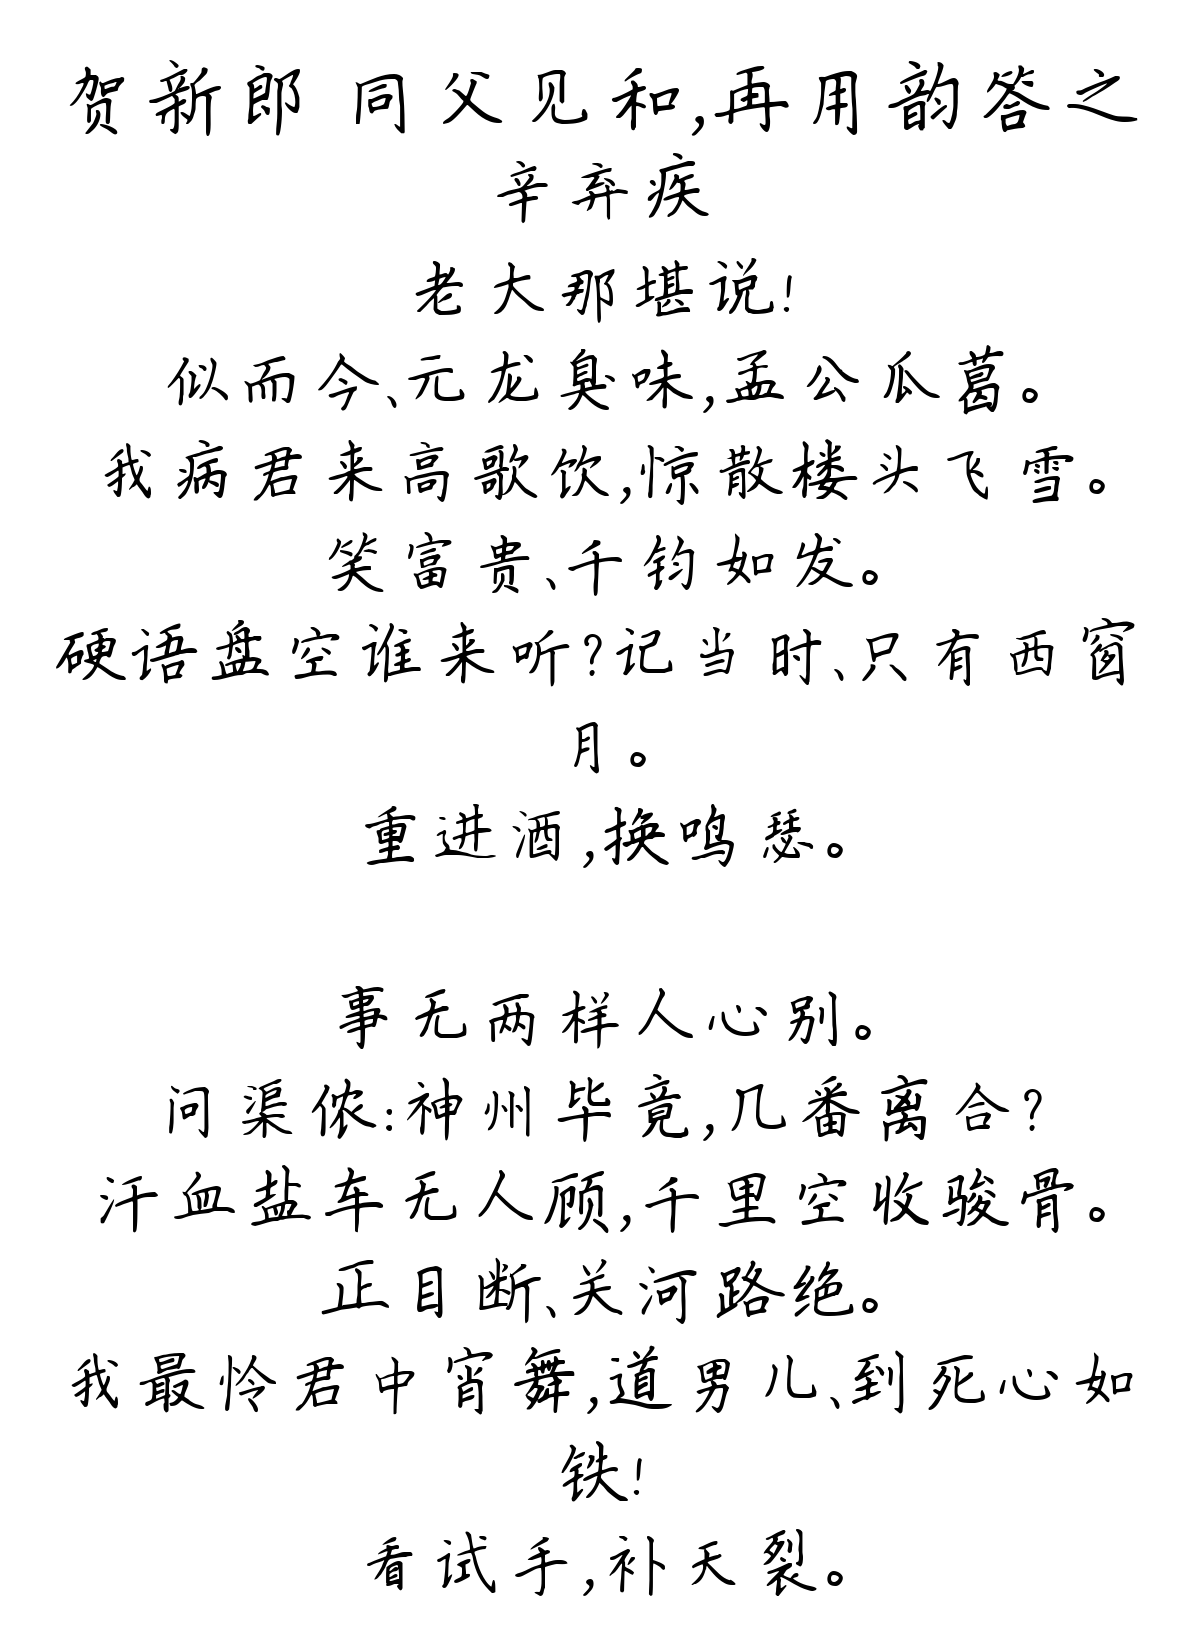 贺新郎 同父见和,再用韵答之
辛弃疾
老大那堪说!
似而今、元龙臭味,孟公瓜葛。
我病君来高歌饮,惊散楼头飞雪。
笑富贵、千钧如发。
硬语盘空谁来听?记当时、只有西窗
月。
重进酒,换鸣瑟。
事无两样人心别。
问渠侬:神州毕竟,几番离合?
汗血盐车无人顾,千里空收骏骨。
正目断、关河路绝。
我最怜君中宵舞,道男儿、到死心如
铁!
看试手,补天裂。